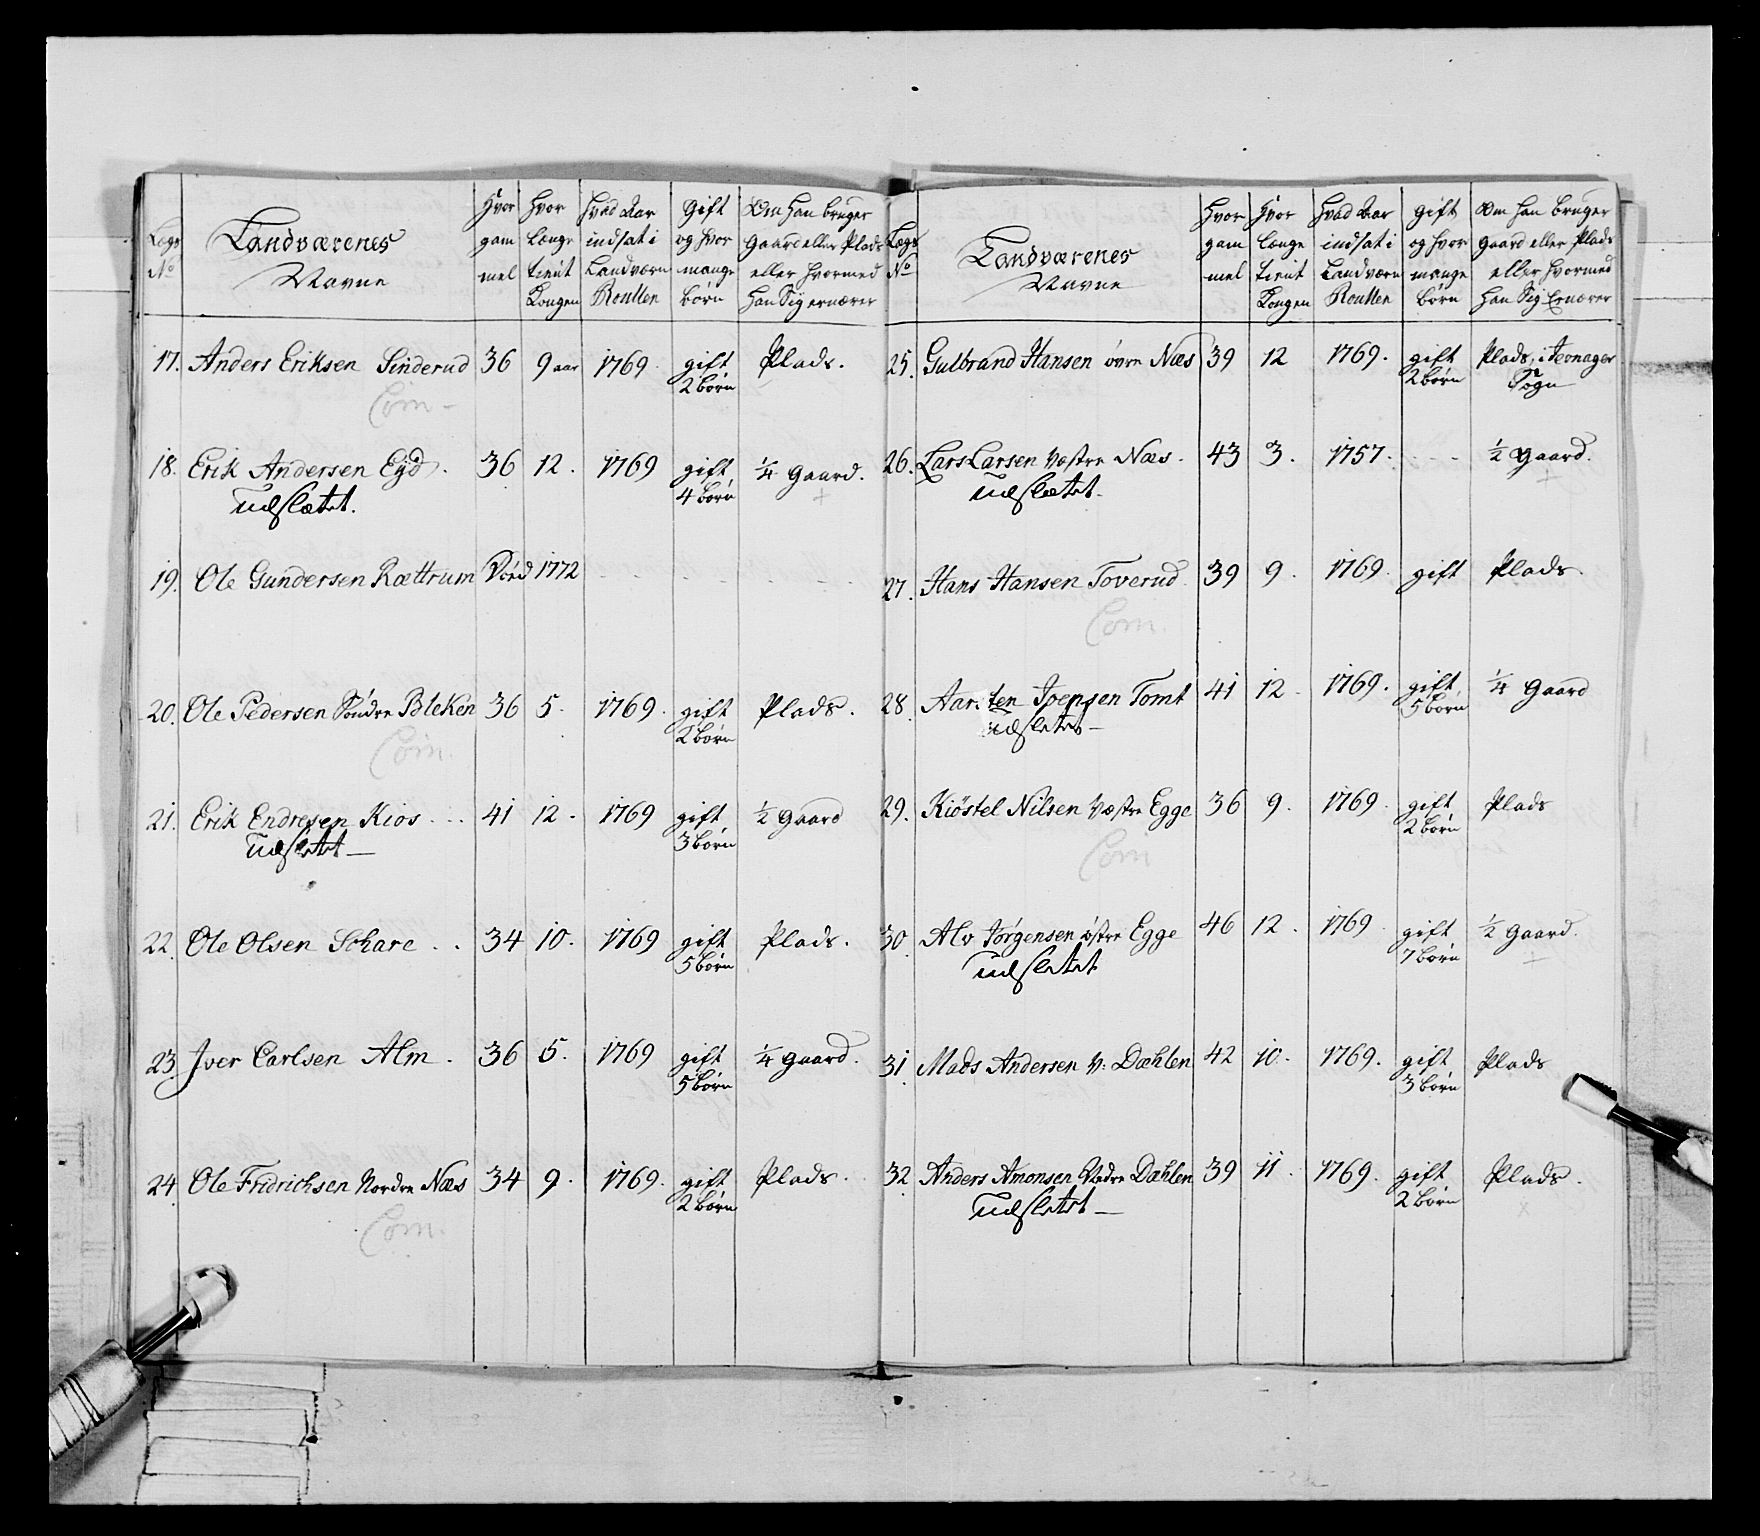 Lægs No | Landværenes Navne | Hvor gam mel | Hvor længe tient Kongen | Hvad Aar indsat i Landværn Roullen | Gift og hvor mange børn | Om han bruger Gaard eller Plads eller hvormed han Sig ernærer
17. Anders Eriksen Sinderud 36 9 aar 1769 gift 2 börn Plads.
Com-
18. Erik Andersen Eyd. 36 12. 1769 gift 4 börn ¼ Gaard.
udslætet.
19. Ole Gundersen Rættrum Död 1772
20. Ole Pedersen Söndre Bleken 36 5. 1769. gift 2 börn Plads.
Com.
21. Erik Endresen Kios 41 12. 1769 gift 3 börn ½ Gaard
udsletet
22. Ole Olsen Schare 34 10. 1769 gift 5 börn Plads.
23. Iver Carlsen Alm. 36 5. 1769 gift 5 börn ¼ Gaard.
24. Ole Fridrichsen Nordre Næs 34 9. 1769. gift 2 börn Plads.
Com.
Lægs No | Landværenes Navne | Hvor gam mel | Hvor længe tient Kongen | Hvad Aar indsat i Landværn Roullen | gift og hvor mange börn | Om han bruger Gaard eller Plads eller hvormed han Sig Ernærer
25. Gulbrand Hansen övre Næs 39 12 1769. gift 2 börn Plads, i Jevnager Sogn
26. Lars Larsen Væstre Næs. 43 3. 1757. ½ Gaard.
udslætet.
27. Hans Hansen Toverud 39 9. 1769. gift Plads.
Com.
28. Joensen Tomt 41 12. 1769. gift 5 börn ¼ Gaard
udsletet
29. Kiöstel Nilsen Væstre Egge 36 9. 1769. gift 2 börn Plads
Com
30. Alv Jörgensen östre Egge 46 12. 1769 gift 7 börn ½ Gaard.
udsletet
31. Mads Andersen V: Dæhlen 42 10. 1769. gift 3 börn Plads
32. Anders Amonsen Dæhlen 39 11. 1769. gift 2 börn Plads.
udsletet